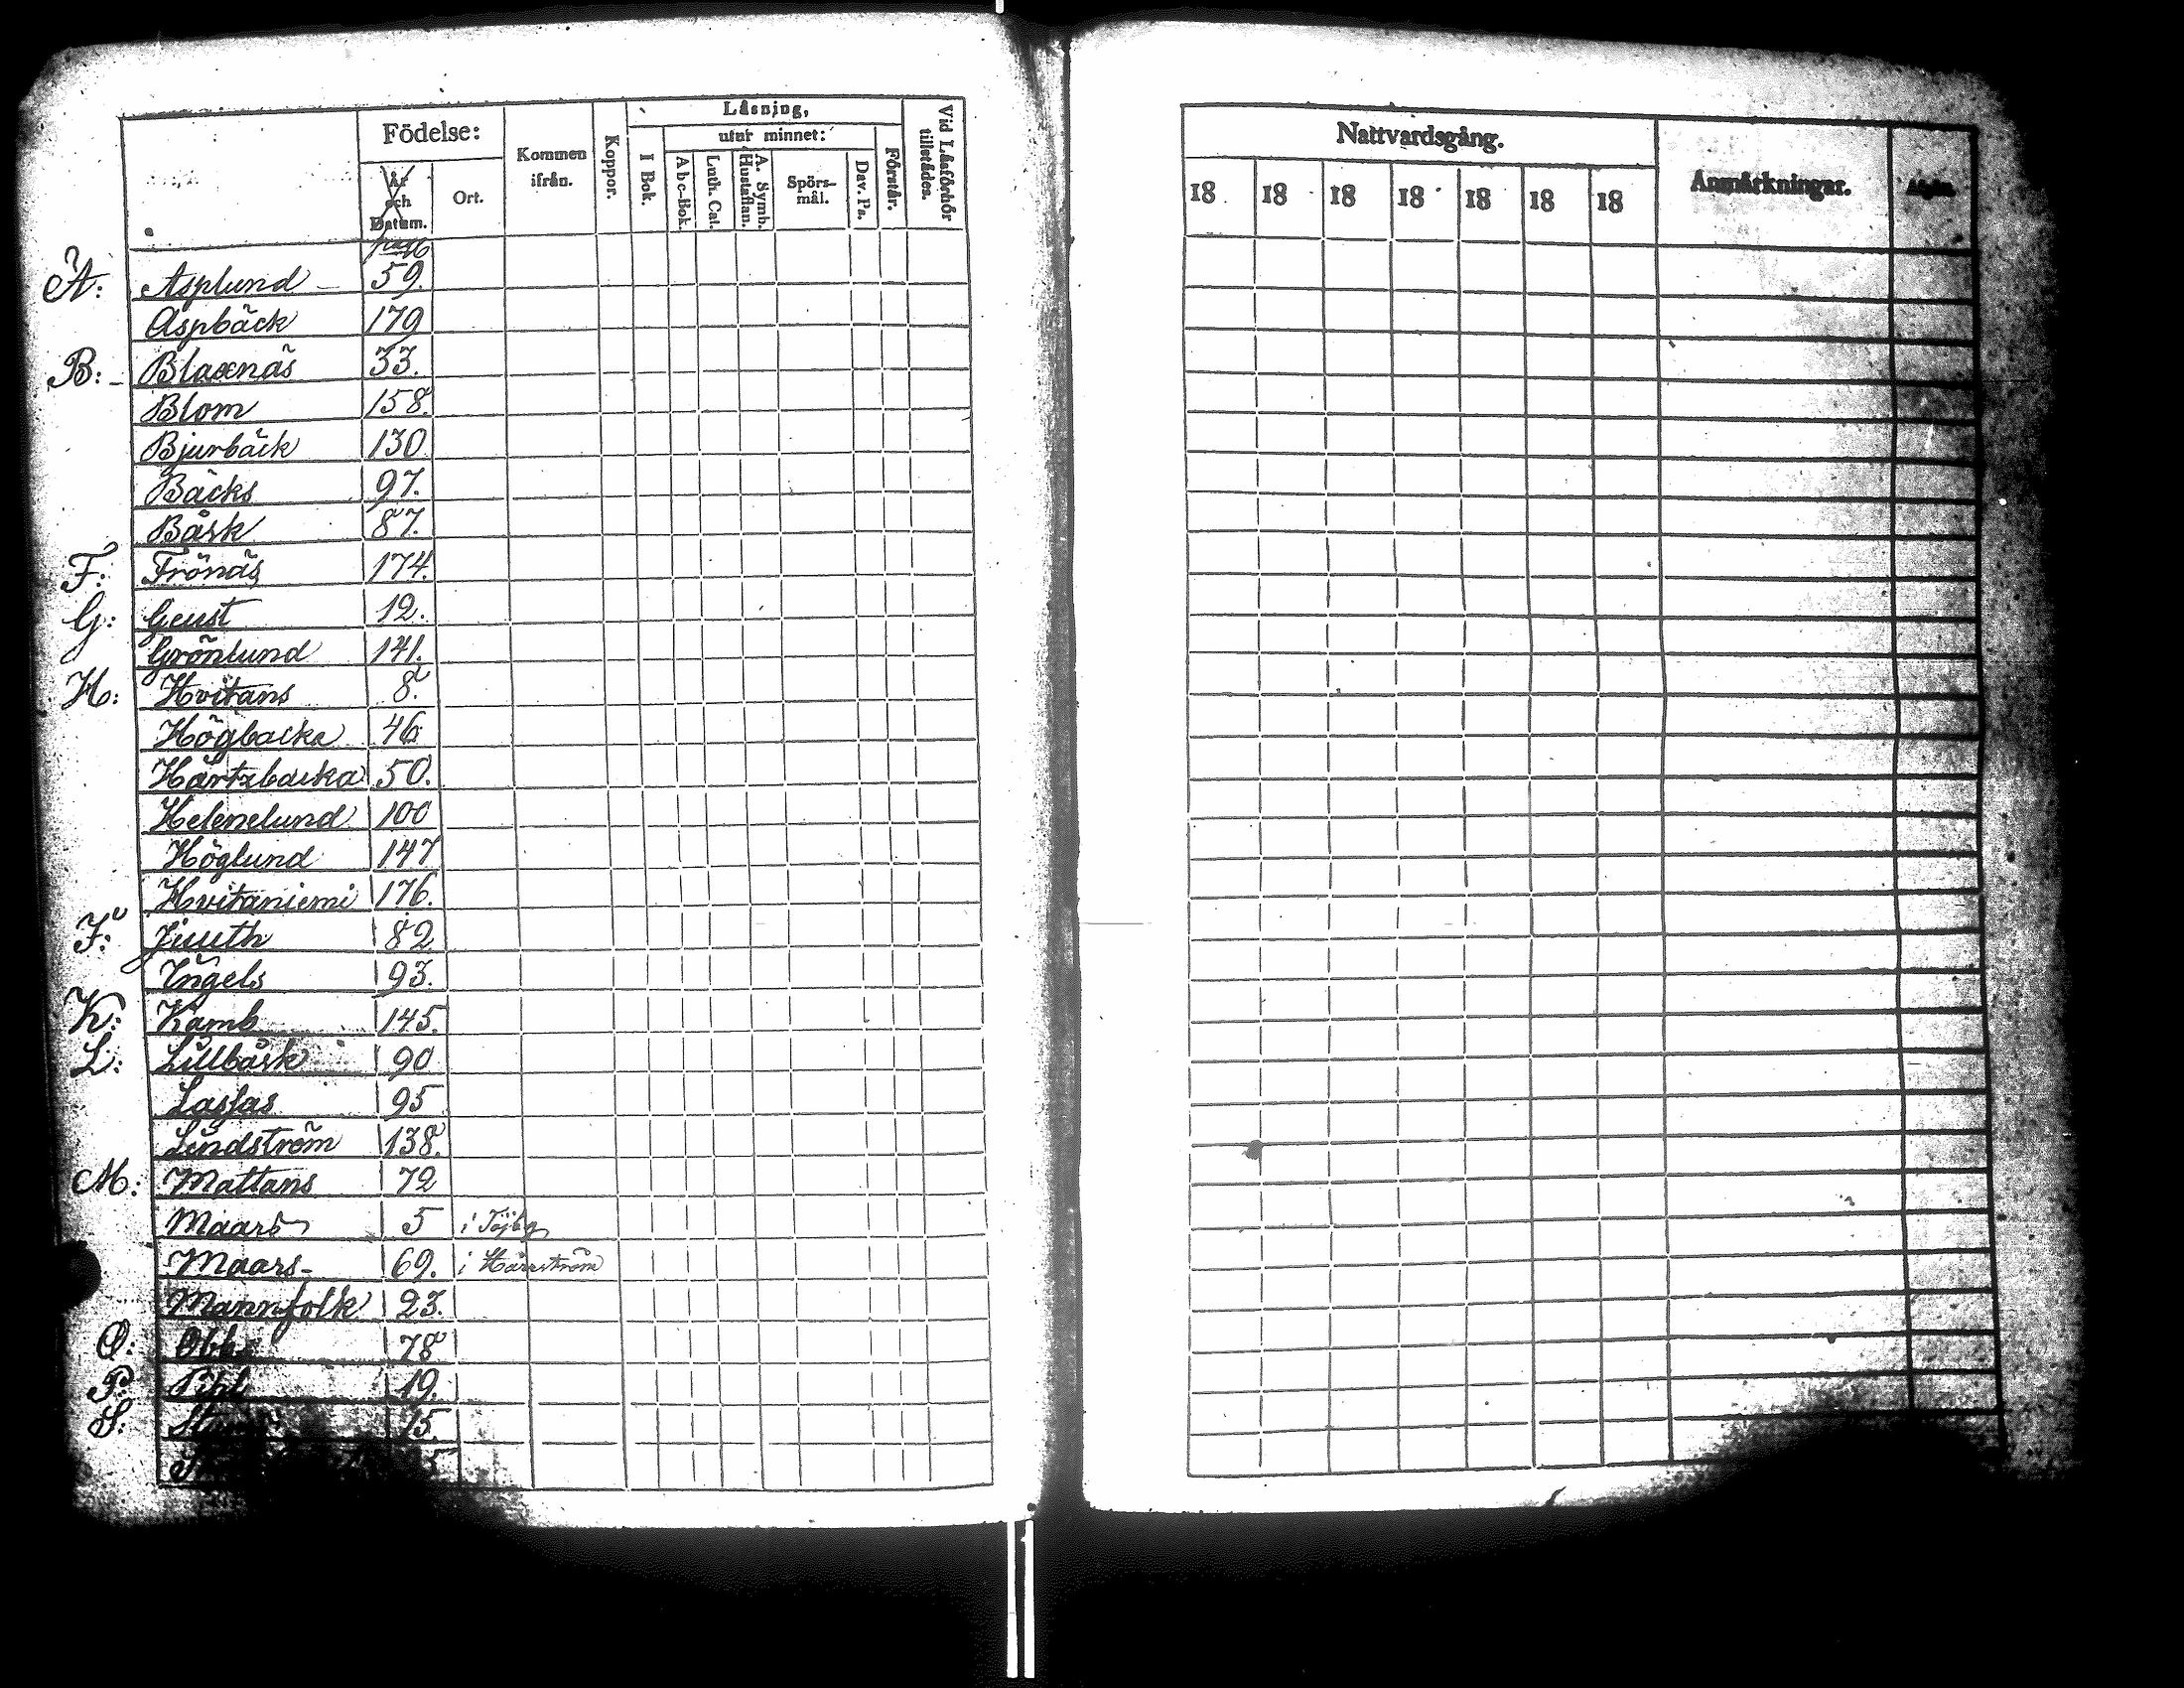 Födelse:
År och Datum.
Ort.
Kommen ifrån.
Koppor.
Läsning,
I Bok.
utur minnet:
A b c-Bok.
Luth. Cat.
A. Symb. Hustaflan.
Spörs-mål.
Dav. Ps.
Förstår.
Vid Läsförhör tillstädes.
A: Asplund 59.
Aspbäck 179
B: Blaxnäs 33.
Blom 158.
Bjurbäck 130
Bäcks 97.
Båsk 87.
F: Frönäs 174.
G: Geust 12.
Grönlund 141.
H: Hvitans 8.
Högbacka 46.
Hartzbacka 50.
Helenelund 100
Höglund 147
Hvitaniemi 176.
J: Juuth 82
Ingels 93.
K: Kamb 145.
L: Lillbåsk 90
Lassas 95
Lindström 138.
M: Mattans 72
Maars 5 i Töjby
Maars 69. i Härrström
Mannfolk 23.
O: 78
P: Pihl 19.
S: 15.
Nattvardsgång.
18 18 18 18 18 18 18
Anmärkningar.